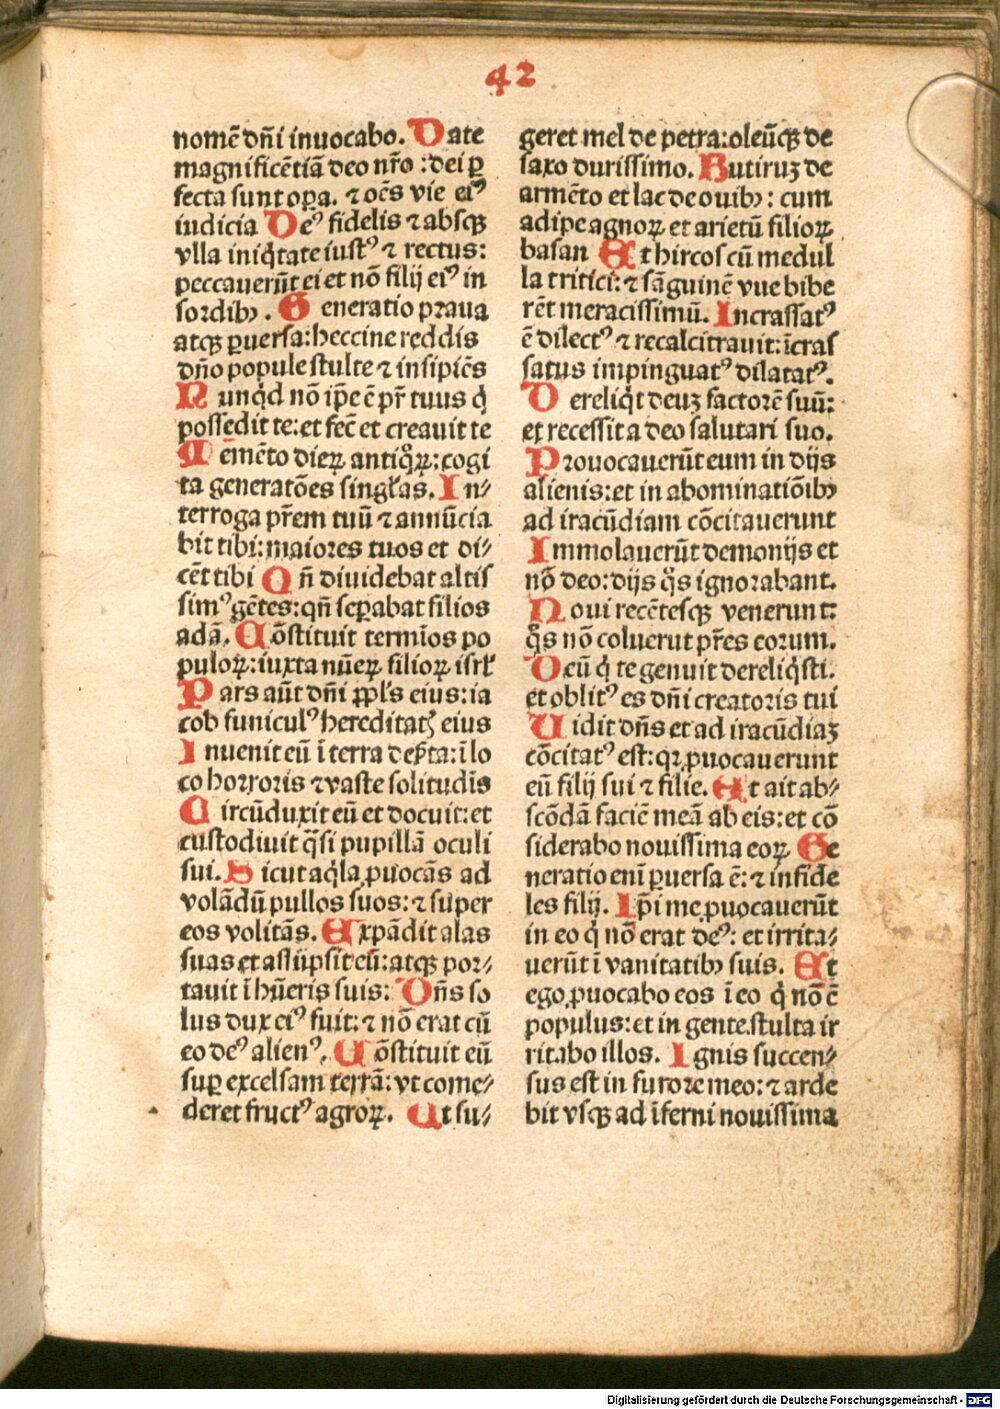 42
nomē dn̄i inuocabo. Date
magnificētiā deo nr̄o : dei ꝑ
fecta sunt oꝑa. ⁊ oēs vie eiꝰ
iudicia Deꝰ fidelis ⁊ absqꝫ
vlla iniq̇tate iustꝰ ⁊ rectus:
peccauerūt ei et nō filij eiꝰ in
sordibꝫ. Generatio praua
atqꝫ ꝑuersa: heccine reddis
dn̄o popule stulte ⁊ insipiēs
Nunqd nō ip̄e ē pr̄ tuus q̇
possedit te: et fec̄ et creauit te
Memēto dieꝝ antiqͦꝝ: cogi
ta generatōes singl̓as. In⸗
terroga pr̄em tuū ⁊ annūcia
bit tibi: maiores tuos et di⸗
cēt tibi Qn̄ diuidebat altis
simꝰ gētes: qn̄ seꝑabat filios
adā. Cōstituit termīos po
puloꝝ: iuxta nūeꝝ filioꝝ isrl̓
Pars aūt dn̄i ppl̓s eius: ia
cob funiculꝰ hereditatꝭ eius
Inuenit eū ī terra desṛta: ī lo
co horroris ⁊ vaste solitudīs
Circūduxit eū et docuit: et
custodiuit q̄si pupillā oculi
sui. Sicut aq̇la ꝓuocās ad
volādū pullos suos: ⁊ super
eos volitās. Expādit alas
suas et assūpsit eū: atqꝫ por⸗
tauit ī hūeris suis: Dn̄s so
lus dux eiꝰ fuit: ⁊ nō erat cū
eo deꝰ alienꝰ. Cōstituit eū
suꝑ excelsam terrā: vt come⸗
deret fructꝰ agroꝝ. Ut su⸗
geret mel de petra: oleūqꝫ de
saxo durissimo. Butiruꝫ de
armēto et lac de ouibꝫ: cum
adipe agnoꝝ et arietū filioꝝ
basan Et hircos cū medul
la tritici: ⁊ sāguinē vue bibe
rēt meracissimū. Incrassatꝰ
ē dilectꝰ ⁊ recalcitrauit: īcras
satus impinguatꝰ dilatatꝰ.
Dereliq̇t deuꝫ factorē suū:
et recessit a deo salutari suo.
Prouocauerūt eum in dijs
alienis: et in abominatiōibꝫ
ad iracūdiam cōcitauerunt
Immolauerūt demonijs et
nō deo: dijs qͦs ignorabant.
Noui recētesqꝫ venerunt:
qͦs nō coluerut pr̄es eorum.
Deū q̇ te genuit dereliq̇sti.
et oblitꝰ es dn̄i creatoris tui
Uidit dn̄s et ad iracūdiaꝫ
cōcitatꝰ est: qꝛ ꝓuocauerunt
eū filij sui ⁊ filie. Et ait ab⸗
scōdā faciē meā ab eis: et cō
siderabo nouissima eoꝝ Ge
neratio enī ꝑuersa ē: ⁊ infide
les filij. Ip̄i me ꝓuocauerūt
in eo q̇ nō erat deꝰ: et irrita⸗
uerūt ī vanitatibꝫ suis. Et
ego ꝓuocabo eos ī eo q̇ nō ē
populus: et in gente stulta ir
ritabo illos. Ignis succen⸗
sus est in furore meo: ⁊ arde
bit vsqꝫ ad īferni nouissima
Digitalisierung gefördert durch die Deutsche Forschungsgemeinschaft - DFG